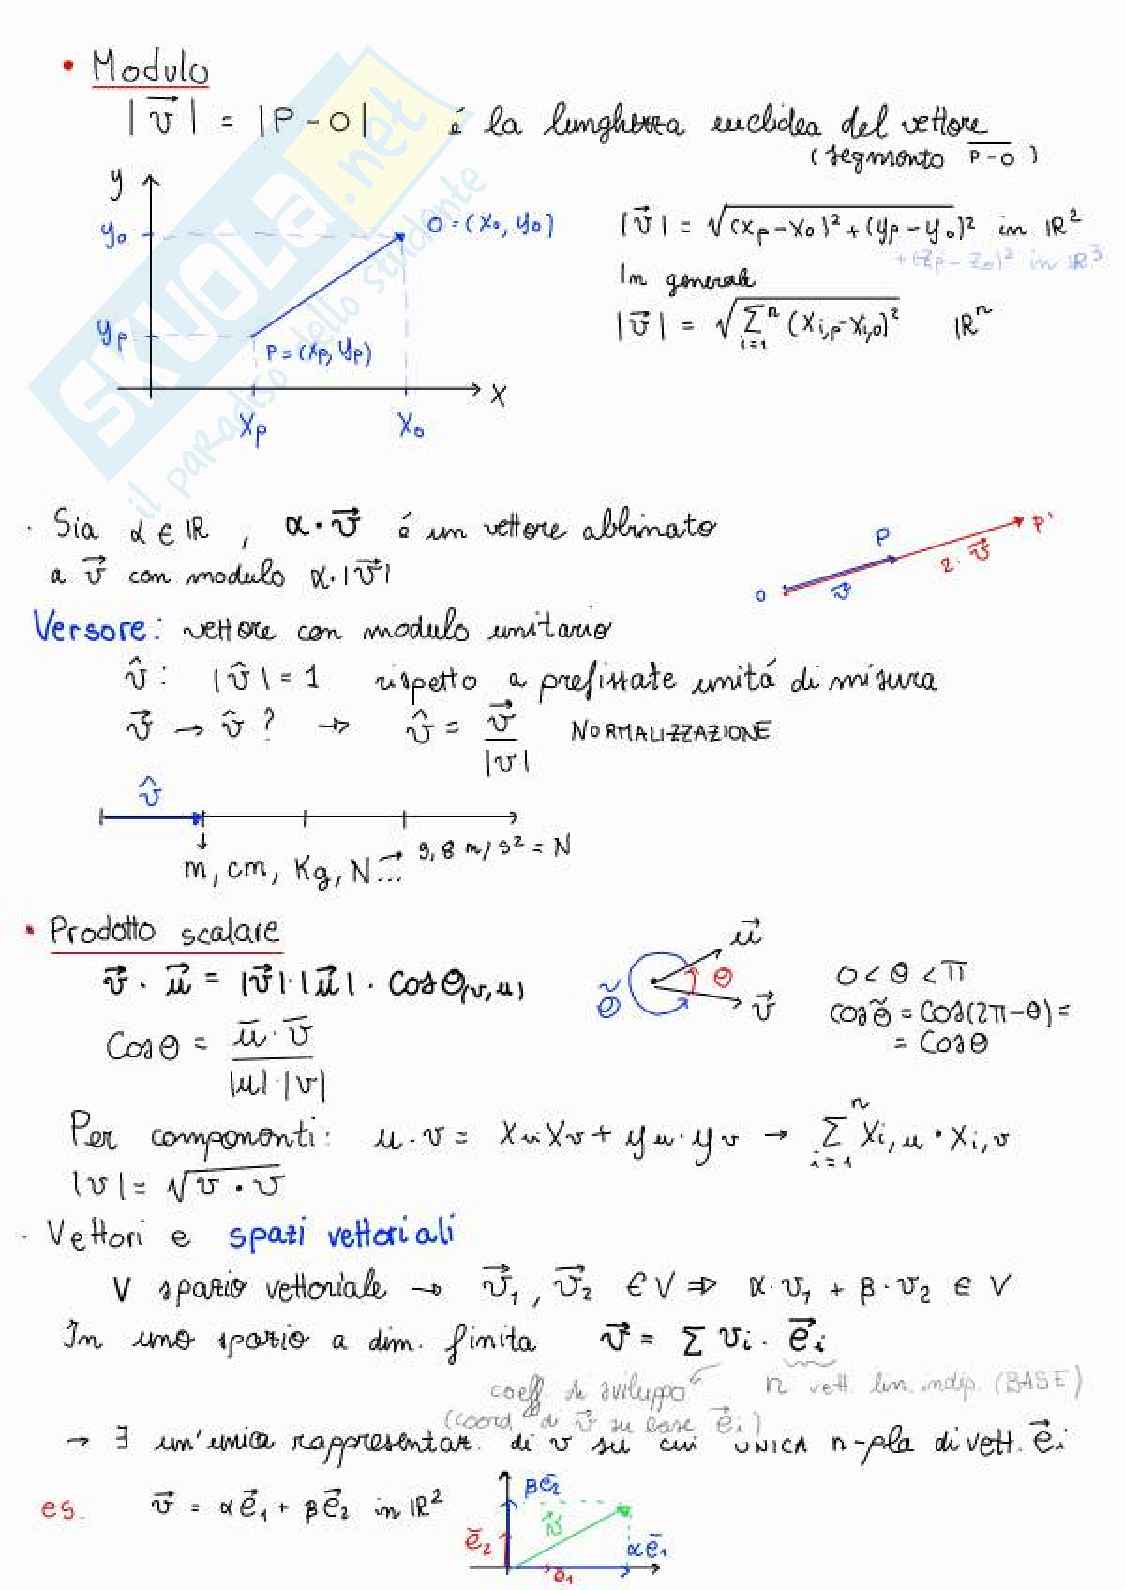 • Modulo
|v⃗| = |P-O| é la lunghezza euclidea del vettore
(segmento P-O)
y
y₀
O=(x₀, y₀)
yₚ
P=(xₚ, yₚ)
x
xₚ
x₀
|v⃗| = √(xₚ-x₀)²+(yₚ-y₀)² in ℝ²
+(zₚ-z₀)² in ℝ³
In generale
|v⃗| = √Σⁿᵢ₌₁ (xᵢ,ₚ-xᵢ,₀)² ℝⁿ
SKUOLA.net
il paradiso dello studente
· Sia α ∈ ℝ, α·v⃗ é un vettore abbinato
a v⃗ con modulo α·|v⃗|
O
P
P'
v⃗
2·v⃗
Versore: vettore con modulo unitario
v̂: |v̂|=1 rispetto a prefissate unitá di misura
v⃗ → v̂ ? → v̂ = v⃗/|v| NORMALIZZAZIONE
v̂
m, cm, Kg, N... → 9,8 m/s² = N
• Prodotto scalare
v⃗ · u⃗ = |v⃗|·|u⃗| · cosθ(v,u)
cosθ = u̅·v̅ / |u|·|v|
u⃗
θ
v⃗
θ̃
0<θ<π
cosθ̃ = cos(2π-θ) =
= cosθ
Per componenti: u·v = xᵤxᵥ + yᵤ·yᵥ → Σⁿᵢ₌₁ xᵢ,ᵤ · xᵢ,ᵥ
|v| = √v·v
· Vettori e spazi vettoriali
V spazio vettoriale → v⃗₁, v⃗₂ ∈ V ⇒ α·v₁ + β·v₂ ∈ V
In uno spazio a dim. finita v⃗ = Σ vᵢ · e⃗ᵢ
coeff. di sviluppo n vett. lin. indip. (BASE)
(coord di v⃗ su base e⃗ᵢ)
→ ∃ un'unica rappresentaz. di v su cui UNICA n-pla di vett. e⃗ᵢ
es. v⃗ = αe⃗₁ + βe⃗₂ in ℝ²
βe̅₂
v⃗
e̅₂
αe̅₁
e̅₁